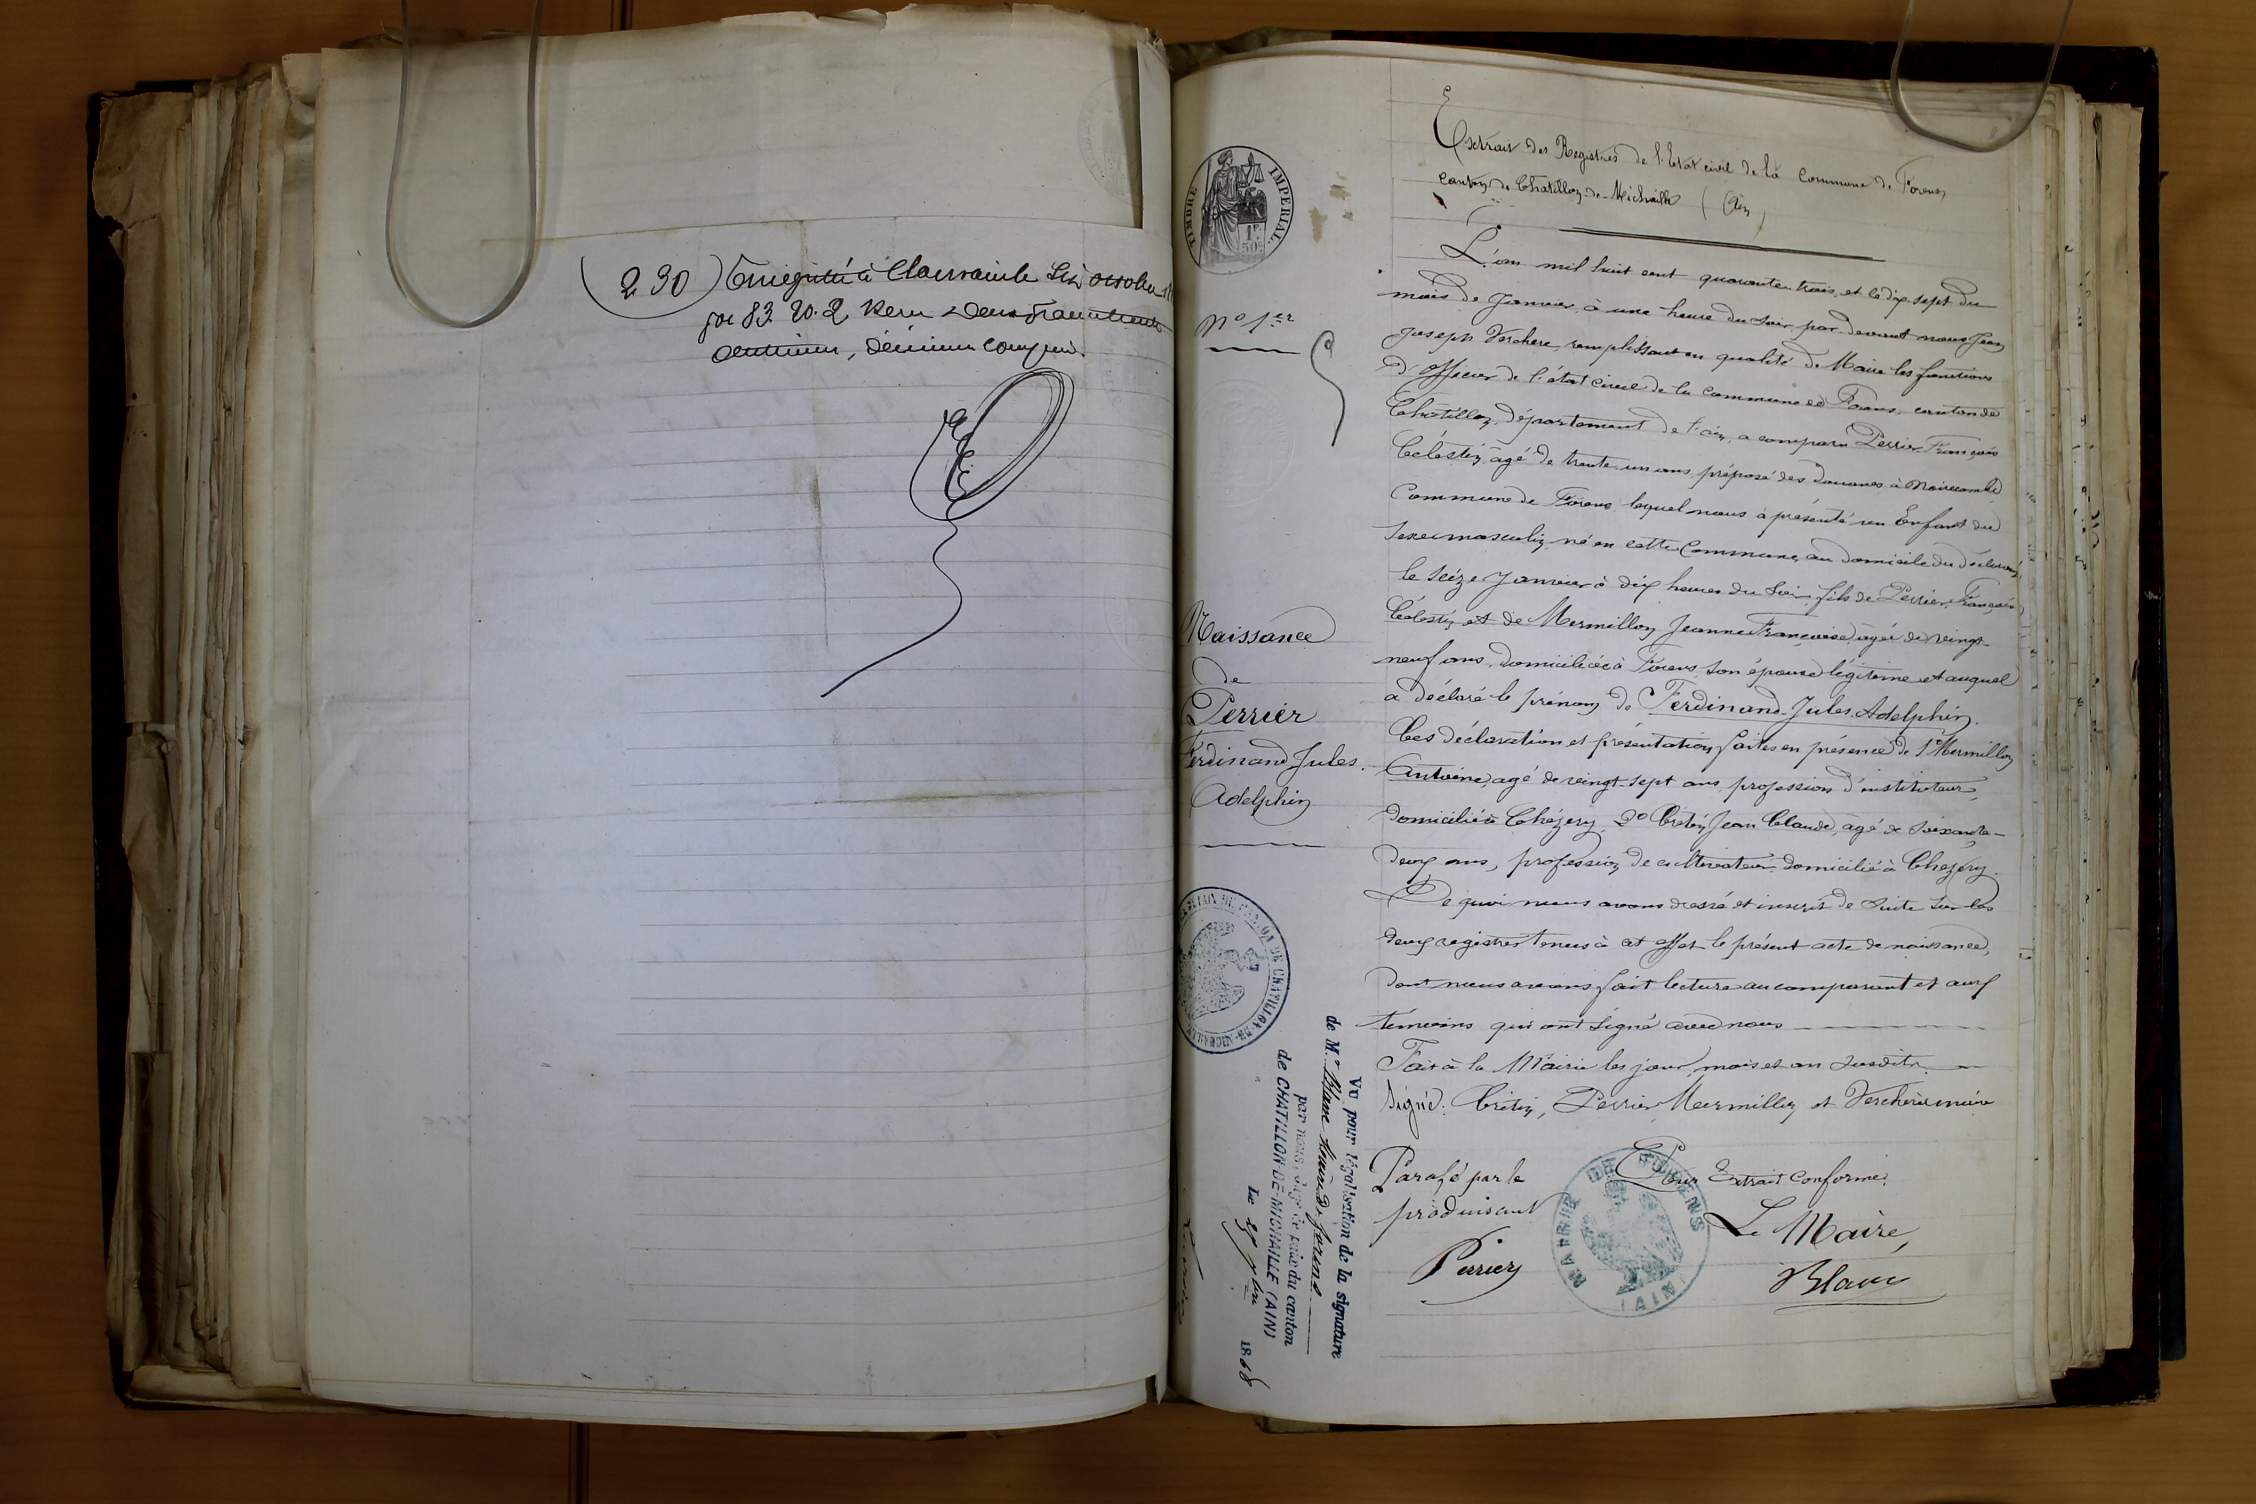 (2 30) Enregistré à Clairvaux le six octobre
fol 83 Vo. 2 Reçu deux francs trente
centimes, décimes compris.
TIMBRE IMPERIAL
1F.
50c
Extrait des Registres de l'Etat civil de la Commune de Forens
canton de Chatillon-de-Michaille (Ain)
N° 1er
L'an mil huit cent quarante-trois, et le dix sept du
mois de Janvier, à une heure du soir, par-devant nous Jean
Joseph Verchere, remplissant en qualité de Maire les fonctions
d'officier de l'état civil de la commune de Forens, canton de
Châtillon, département de l'ain, a comparu Perrier François
Célestin, âgé de trente-un ans, préposé des Douanes à Noirecombe
Commune de Forens, lequel nous à présenté un Enfant du
sexe masculin, né en cette Commune, au domicile du déclarant,
le seize Janvier à dix heures du soir, fils de Perrier François
Célestin et de Mermillon Jeanne Françoise, agée de vingt-
neuf ans, domiciliée à Forens, son épouse légitime et auquel
a déclaré le prénom de Ferdinand-Jules-Adelphin.
Ces déclaration et présentation faites en présence de 1° Mermillon
Antoine, agé de vingt-sept ans, profession d'instituteur,
domicilié à Chézery, 2° Crétin Jean Claude, agé de soixante-
deux ans, profession de cultivateur, domicilié à Chézery.
De quoi nous avons dressé et inscrit de suite sur les
deux registres tenus à cet effet le présent acte de naissance,
dont nous avons fait lecture au comparant et aux
témoins qui ont signé avec nous
Fait à la Mairie les jour, mois et an susdits.
Signé: Crétin, Perrier, Mermillon et Verchère maire
Naissance
de
Perrier
Ferdinand Jules.
Adelphin
Parafé par le
produisant
Perrier
Pour Extrait conforme,
Le Maire,
Blanc
MAIRIE DE FORENS
(AIN)
DE CHATILLON-DE-MICHAILLE
Vu pour légalisation de la signature
de M.r Blanc Maire de Forens
par nous, Juge de Paix du canton
de CHATILLON-DE-MICHAILLE (AIN)
Le 25 7bre 1868